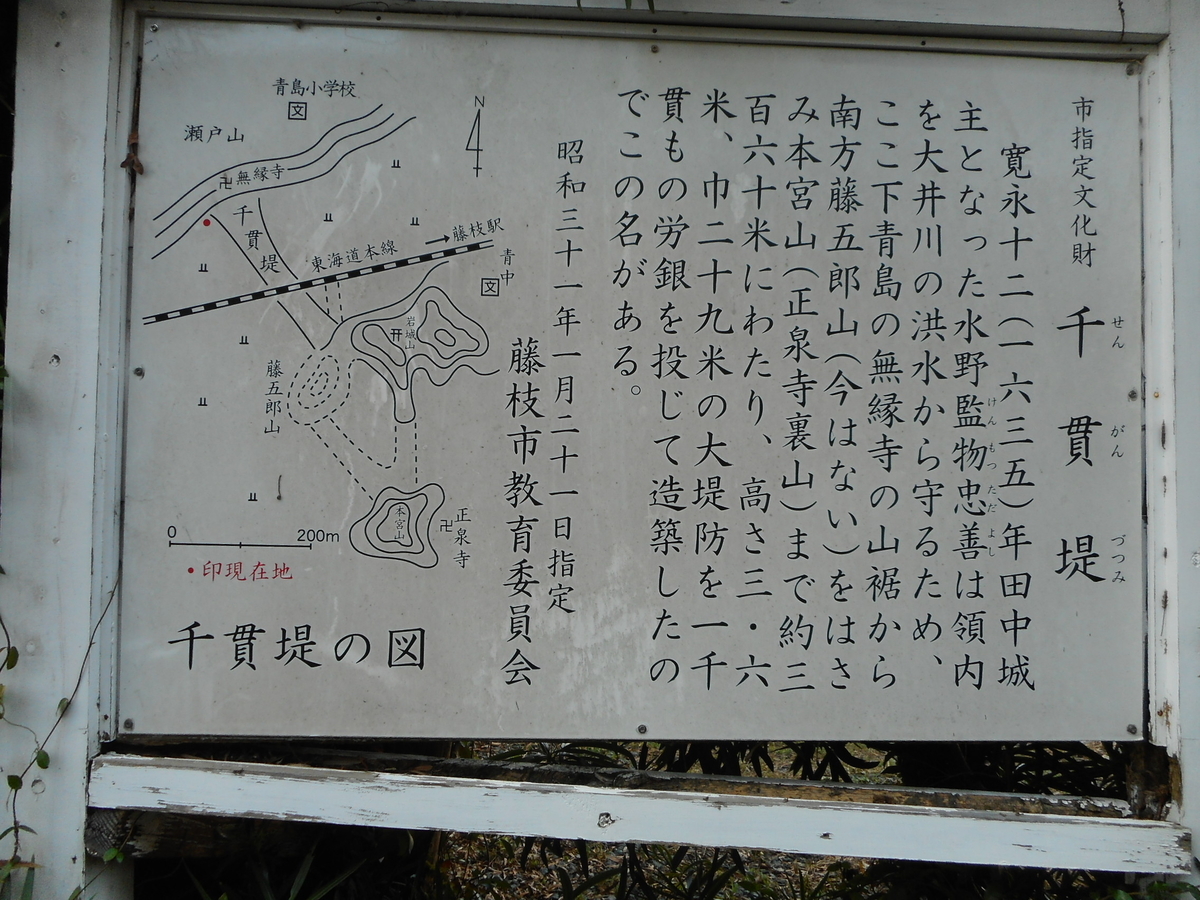 市指定文化財
千貫堤
せん がん づつみ
寛永十二(一六三五)年田中城
主となった水野監物忠善は領内
けんもつただよし
を大井川の洪水から守るため、
ここ下青島の無縁寺の山裾から
南方藤五郎山(今はない)をはさ
み本宮山(正泉寺裏山)まで約三
百六十米にわたり、高さ三・六
米、巾二十九米の大堤防を一千
貫もの労銀を投じて造築したの
でこの名がある。
昭和三十一年一月二十一日指定
藤枝市教育委員会
青島小学校
文
瀬戸山
卍無縁寺
千貫堤
N
東海道本線
→藤枝駅
青中
文
岩城山
藤五郎山
本宮山
卍正泉寺
0 200m
•印現在地
千貫堤の図